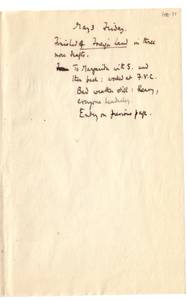 May 3 Friday.
Finished of Foreign Land in three
more drafts.
To Margarida with S. and
then back: worked at F.V.C.
Bad weather still: heavy,
everyone headachy.
Entry on previous page.